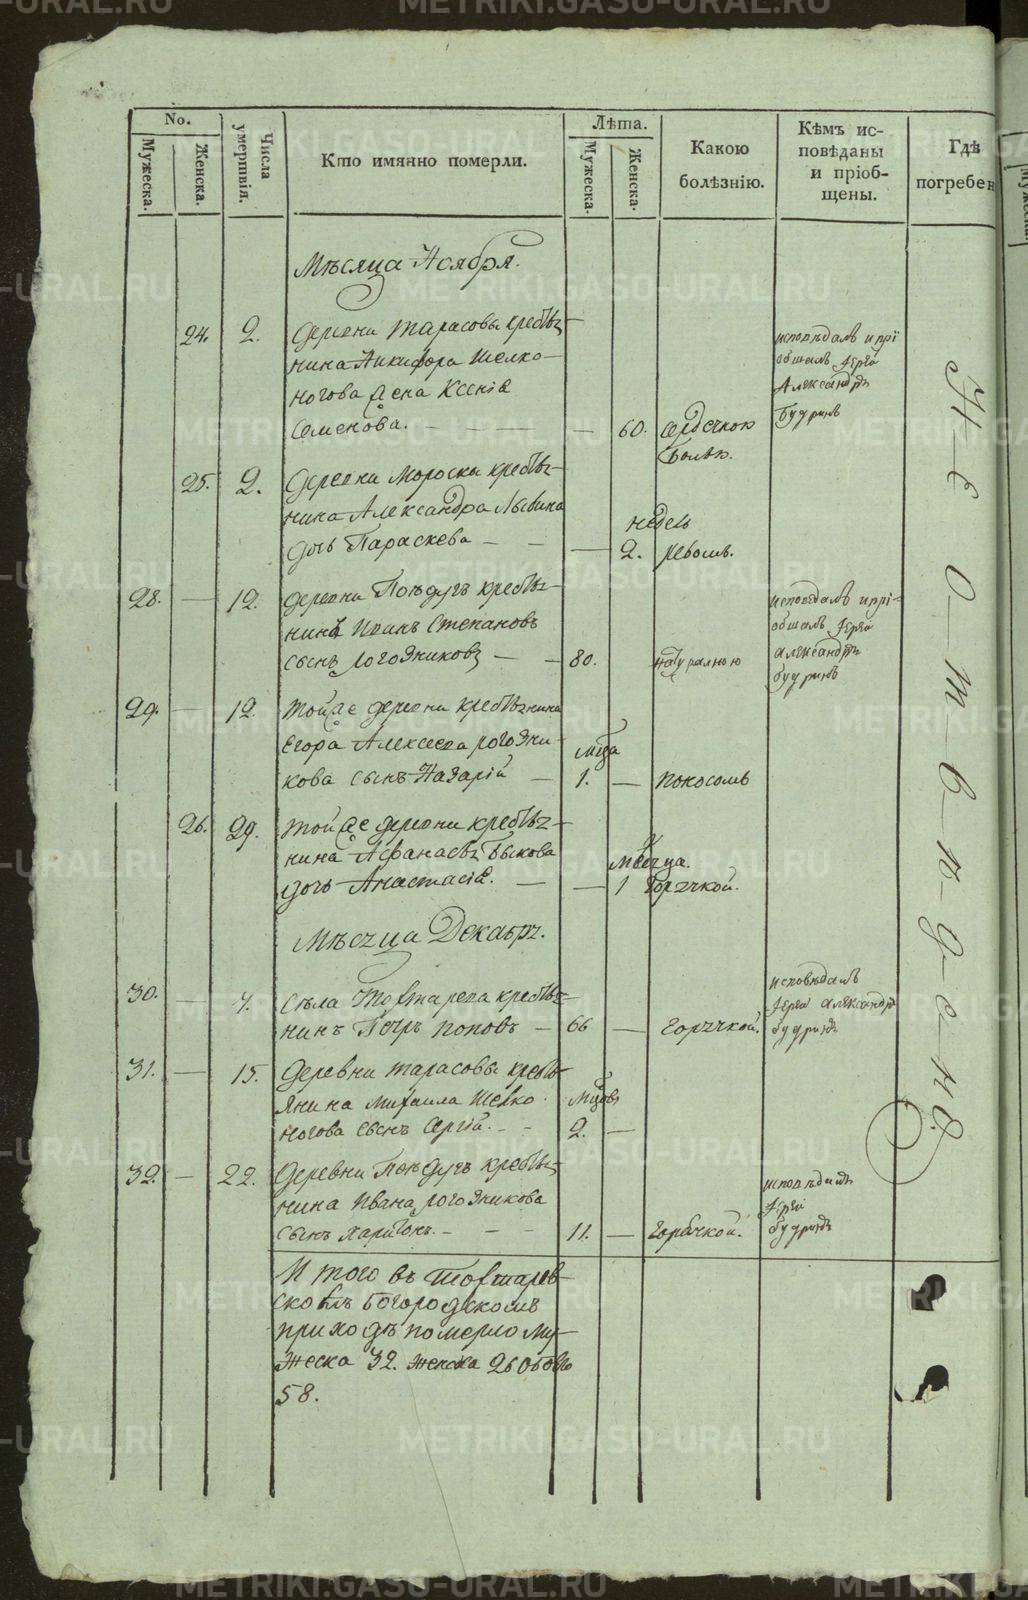 No.
Мужеска.
Женска.
Числа умертвія.
Кто имянно померли.
Лѣта.
Мужеска.
Женска.
Какою болѣзнію.
Кѣмъ исповѣданы и пріобщены.
Гдѣ погребен
Мѣсяца Ноября.
24. 2. деревни Тарасовы крестья-
нина Никифора Шелко-
ногова жена Ксенія
Семенова. — 60. сердечною
болью.
исповѣдалъ и прі
общалъ Іерей
Александръ
Будринъ
25. 2. деревни Мороски крестья-
нина Александра
дочь Параскева — недель
2. ревомъ.
28. — 12. деревни крестья-
нинъ Иванъ Степановъ
сынъ Рогожниковъ — 80. натуралною
исповѣдалъ и прі-
общалъ Іерей
Александръ
Будринъ
29. — 12. той же деревни крестьянина
Егора Алексеева Рогожни-
кова сынъ Назарій — мца
1. — поносомъ
26. 29. той же деревни крестья-
нина Афанасья Быкова
дочь Анастасія. — месяца.
1 горячкой.
Мѣсяца Декабря.
30. — 7. села крестья-
нинъ Петръ Поповъ — 66 — горячкой.
исповѣдалъ
Іерей Александръ
Будринъ
31. — 15. Деревни Тарасовы кресть-
янина Михаила Шелко
ногова сынъ Сергій. — мцовъ
2. —
32. — 22. Деревни крестья-
нина Ивана Рогожникова
сынъ Харитонъ. — 11. — горячкой.
исповѣдалъ
Іерей
Будринъ
Не отпѣвѣдено.
Итого въ
Богородскомъ
приходѣ померло му-
жеска 32. женска 26 обоего
58.
METRIKI.GASO-URAL.RU